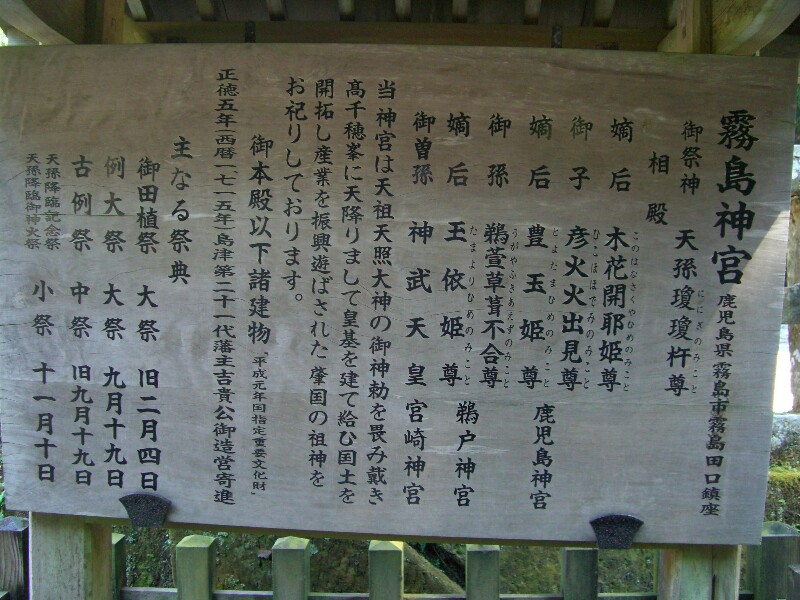 霧島神宮 鹿児島県霧島市霧島田口鎮座
御祭神 天孫瓊瓊杵尊
ににぎのみこと
相殿
嫡后 木花開耶姫尊
このはなさくやひめのみこと
御子 彦火火出見尊
ひこほほでみのみこと
嫡后 豊玉姫尊 鹿児島神宮
とよたまひめのみこと
御孫 鵜萱草葺不合尊
うがやふきあえずのみこと
嫡后 玉依姫尊 鵜戸神宮
たまよりひめのみこと
御曽孫 神武天皇 宮崎神宮
当神宮は天祖天照大神の御神勅を畏み戴き
高千穂峯に天降りまして皇基を建て給ひ国土を
開拓し産業を振興遊ばされた肇国の祖神を
お祀りしております。
御本殿以下諸建物「平成元年国指定重要文化財」
正徳五年(西暦一七一五年)島津第二十一代藩主吉貴公御造営寄進
主なる祭典
御田植祭 大祭 旧二月四日
例大祭 大祭 九月十九日
古例祭 中祭 旧九月十九日
天孫降臨記念祭
天孫降臨御神火祭 小祭 十一月十日